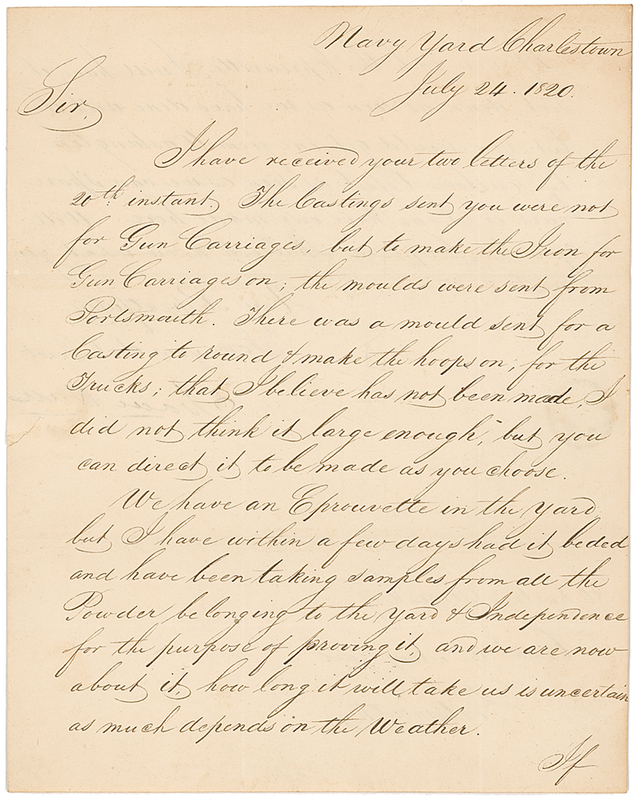 Navy Yard Charlestown
July 24. 1820.
Sir,
I have received your two letters of the
20th instant, The Castings sent you were not
for Gun Carriages, but to make the Iron for
Gun Carriages on; the moulds were sent from
Portsmouth. There was a mould sent for a
Casting to round & make the hoops on, for the
Trucks; that I believe has not been made, I
did not think it large enough, but you
can direct it to be made as you choose.
We have an Eprouvette in the Yard,
but I have within a few days had it beded
and have been taking samples from all the
Powder belonging to the Yard & Independence
for the purpose of proving it, and we are now
about it, how long it will take us is uncertain
as much depends on the Weather.
If